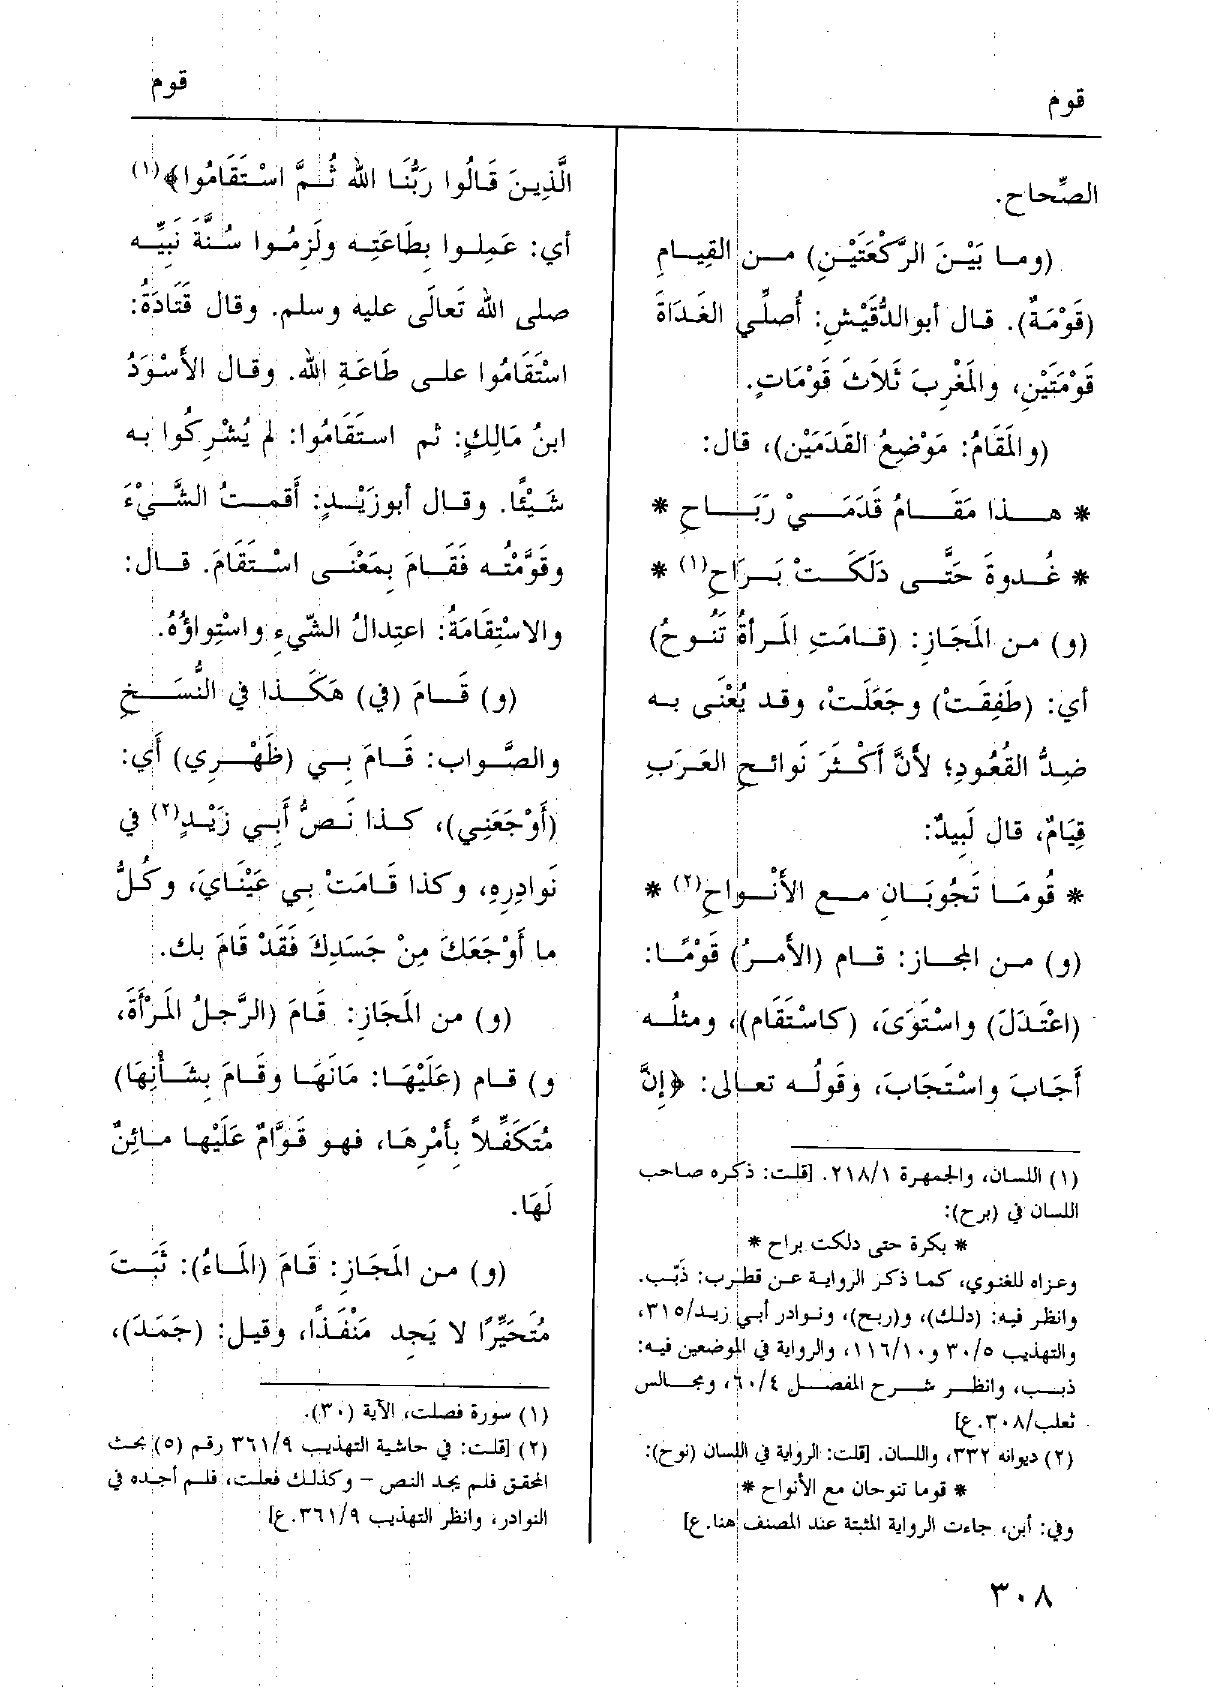 قوم
قوم
الصِّحاح.
(وما بَيْنَ الرَّكْعَتَيْنِ) من القِيامِ
(قَوْمَةٌ). قال أبوالدُّقَيْشِ: أُصلِّي الغَدَاةَ
قَوْمَتَيْنِ، والمَغْرِبَ ثَلَاثَ قَوْمَاتٍ.
(والمَقَامُ: مَوْضِعُ القَدَمَيْن)، قال:
* هذا مَقَامُ قَدَمَيْ رَبَاحِ *
* غُدوةَ حَتَّى دَلَكَتْ بَرَاحِ(١) *
(و) من المَجَازِ: (قامَتِ المَرأةُ تَنُوحُ)
أي: (طَفِقَتْ) وجَعَلَتْ، وقد يُعْنَى به
ضِدُّ القُعُودِ؛ لأنَّ أَكْثَرَ نَوائحِ العَرَبِ
قِيَامٌ، قال لَبِيدٌ:
* قُومَا تَجُوبَانِ مع الأَنْواحِ(٢) *
(و) من المجاز: قام (الأَمرُ) قَوْمًا:
(اعْتَدَلَ) واسْتَوَىَ، (كاسْتَقَام)، ومثلُه
أَجَابَ واسْتَجَابَ، وقولُه تعالى: ﴿إنَّ
(١) اللسان، والجمهرة ٢١٨/١. [قلت: ذكره صاحب
اللسان في (برح):
* بكرة حتى دلكت براح *
وعزاه للغنوي، كما ذكر الرواية عن قطرب: ذَبّب.
وانظر فيه: (دلك)، و(ربح)، ونوادر أبي زيد/٣١٥،
والتهذيب ٣٠/٥ و١١٦/١٠، والرواية في الموضعين فيه:
ذبب، وانظر شرح المفصل ٦٠/٤، ومجالس
ثعلب/٣٠٨.ع]
(٢) ديوانه ٣٣٢، واللسان. [قلت: الرواية في اللسان (نوح):
* قوما تنوحان مع الأنواح *
وفي: أبن، جاءت الرواية المثبتة عند المصنف هنا.ع]
الَّذِينَ قَالُوا رَبُّنَا الله ثُمَّ اسْتَقَامُوا﴾(١)
أي: عَمِلوا بِطَاعَتِه ولَزِمُوا سُنَّةَ نَبِيِّه
صلى الله تَعالَى عليه وسلم. وقال قَتَادَةُ:
اسْتَقَامُوا على طَاعَةِ الله. وقال الأَسْوَدُ
ابنُ مَالِكٍ: ثم استَقَامُوا: لم يُشْرِكُوا به
شَيْئًا. وقال أبوزَيْدٍ: أَقمتُ الشَّيْءَ
وقَوَّمْتُه فَقَام بِمَعْنَى اسْتَقَامَ. قال:
والاسْتِقَامَةُ: اعتِدالُ الشّيءِ واسْتِواؤُهُ.
(و) قَام (في) هَكَذا في النُّسَخِ
والصَّواب: قَامَ بِي (ظَهْرِي) أي:
(أَوْجَعَنِي)، كذا نَصُّ أَبِي زَيْدٍ(٢) في
نَوادِرِهِ، وكذا قَامَتْ بِي عَيْنَايَ، وكُلُّ
ما أَوْجَعَكَ مِنْ جَسَدِكَ فَقَدْ قَامَ بك.
(و) من المَجَازِ: قَامَ (الرَّجلُ المَرْأَةَ،
و) قام (عَلَيْهَا: مَانَهَا وقَامَ بِشَأْنِهَا)
مُتَكَفِّلاً بِأَمْرِهَا، فهو قَوَّامٌ عَلَيْها مائِنٌ
لَهَا.
(و) من المَجَازِ: قَامَ (المَاءُ): ثَبَتَ
مُتَحَيِّرًا لا يَجِد مَنْفَذًا، وقيل: (جَمَدَ)،
(١) سورة فصلت، الآية (٣٠).
(٢) [قلت: في حاشية التهذيب ٣٦١/٩ رقم (٥) بحث
المحقق فلم يجد النص - وكذلك فعلت، فلم أجده في
النوادر، وانظر التهذيب ٣٦١/٩.ع]
٣٠٨